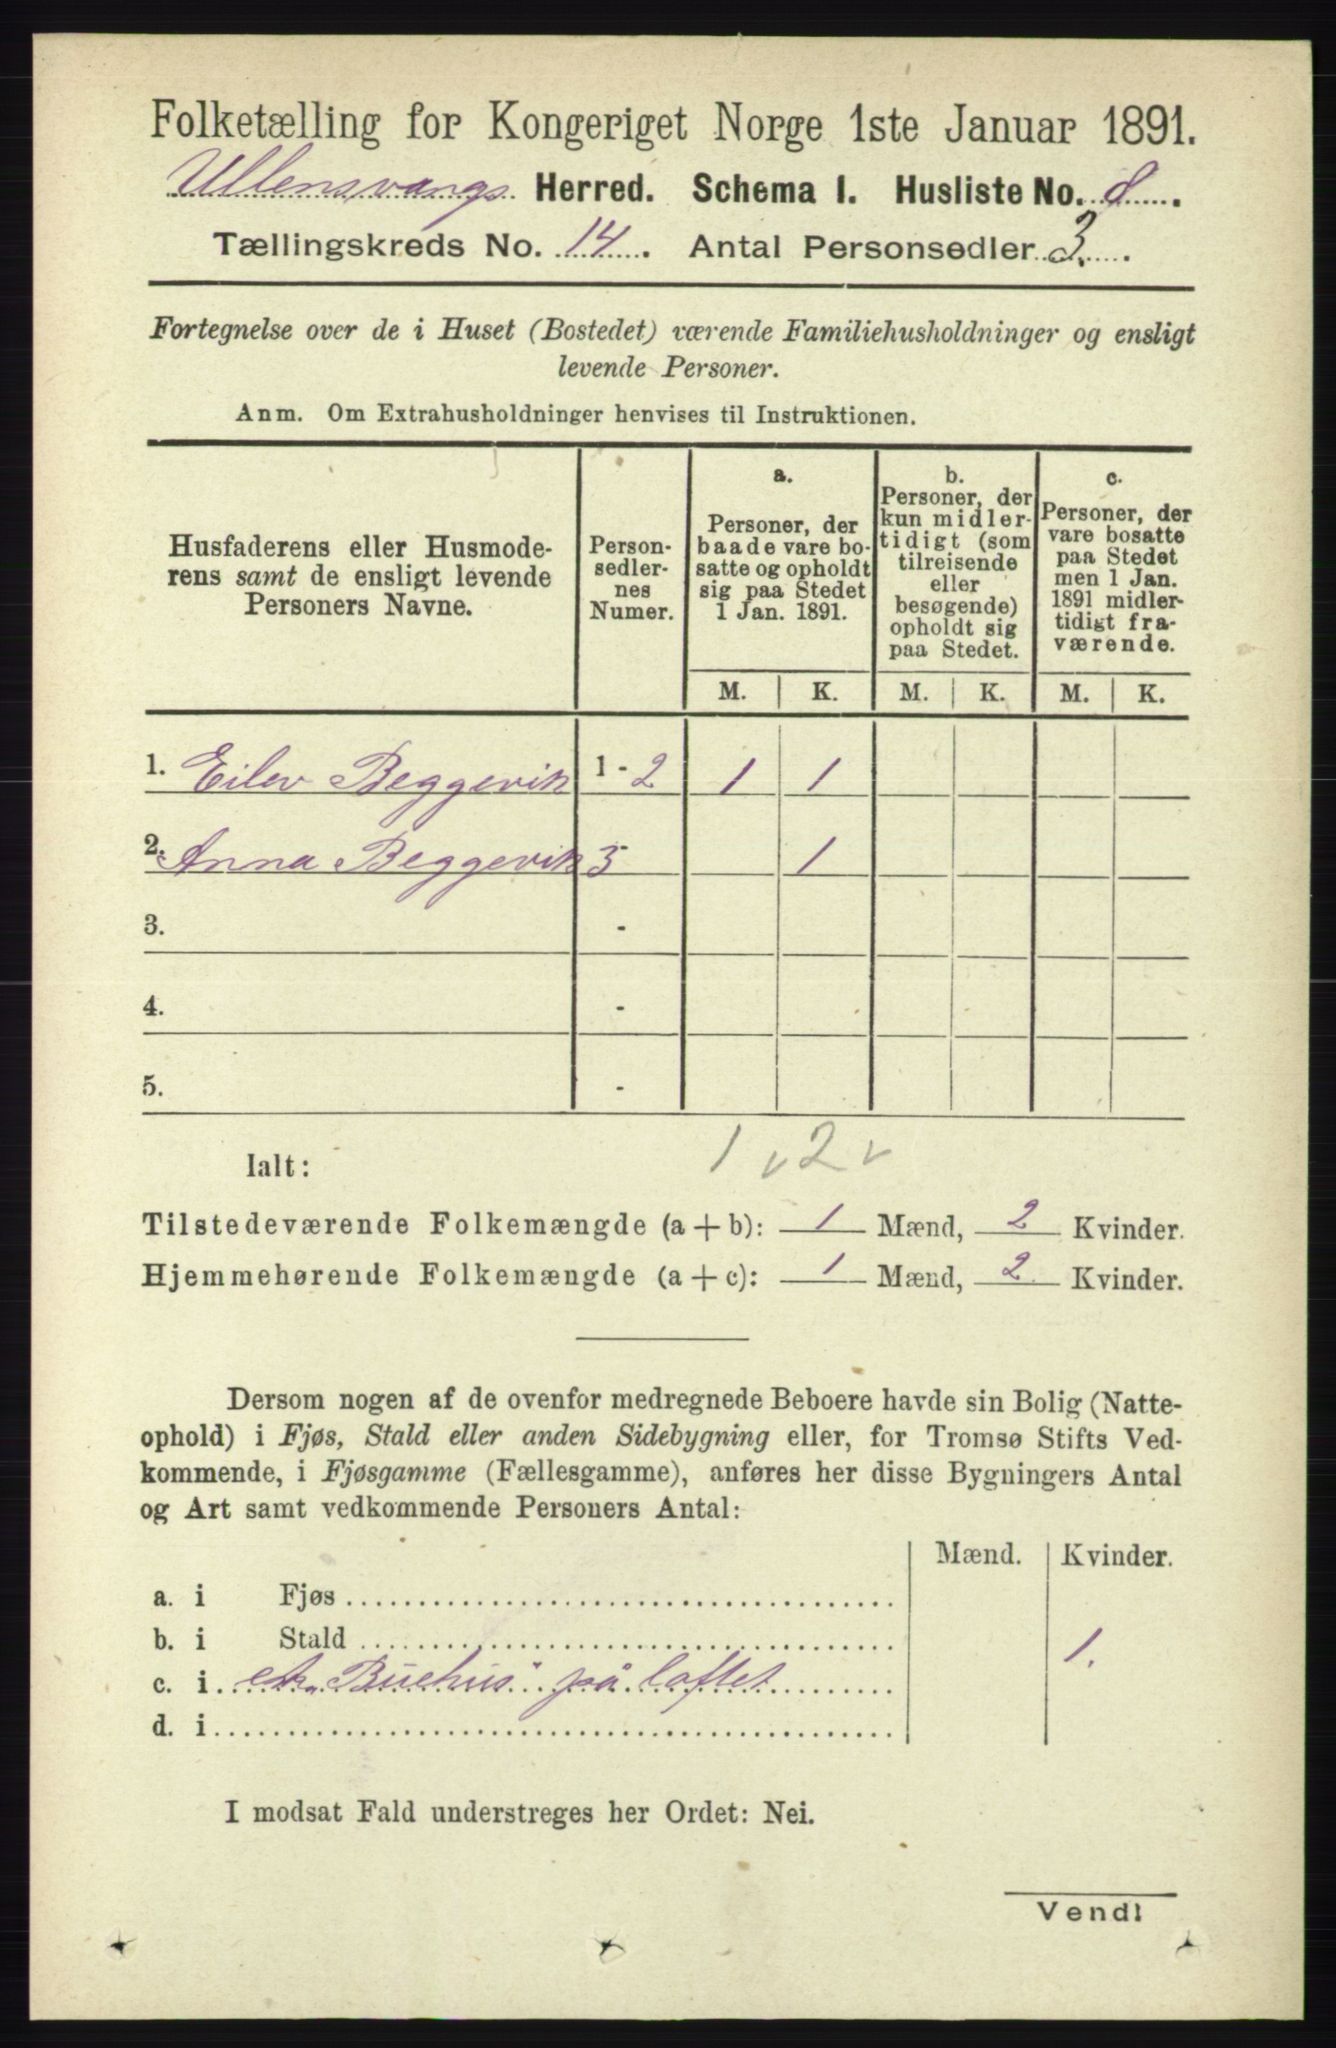 Folketælling for Kongeriget Norge 1ste Januar 1891.
Ullensvangs Herred. Schema I. Husliste No. 8.
Tællingskreds No. 14. Antal Personsedler 3.
Fortegnelse over de i Huset (Bostedet) værende Familiehusholdninger og ensligt
levende Personer.
Anm. Om Extrahusholdninger henvises til Instruktionen.
Husfaderens eller Husmode-
rens samt de ensligt levende
Personers Navne.
Person-
sedler-
nes
Numer.
a.
Personer, der
baade vare bo-
satte og opholdt
sig paa Stedet
1 Jan. 1891.
b.
Personer, der
kun midler-
tidigt (som
tilreisende
eller
besøgende)
opholdt sig
paa Stedet.
c.
Personer, der
vare bosatte
paa Stedet
men 1 Jan.
1891 midler-
tidigt fra-
værende.
M. K. M. K. M. K.
1. Eilev Beggevik 1 - 2 1 1
2. Anna Beggevik 3 1
3. -
4. -
5. -
1 v 2 v
Ialt:
Tilstedeværende Folkemængde (a + b): 1 Mænd, 2 Kvinder.
Hjemmehørende Folkemængde (a + c): 1 Mænd, 2 Kvinder.
Dersom nogen af de ovenfor medregnede Beboere havde sin Bolig (Natte-
ophold) i Fjøs, Stald eller anden Sidebygning eller, for Tromsø Stifts Ved-
kommende, i Fjøsgamme (Fællesgamme), anføres her disse Bygningers Antal
og Art samt vedkommende Personers Antal:
Mænd. Kvinder.
a. i Fjøs
b. i Stald 1.
c. i "Buehus" på loftet
d. i
I modsat Fald understreges her Ordet: Nei.
Vend!